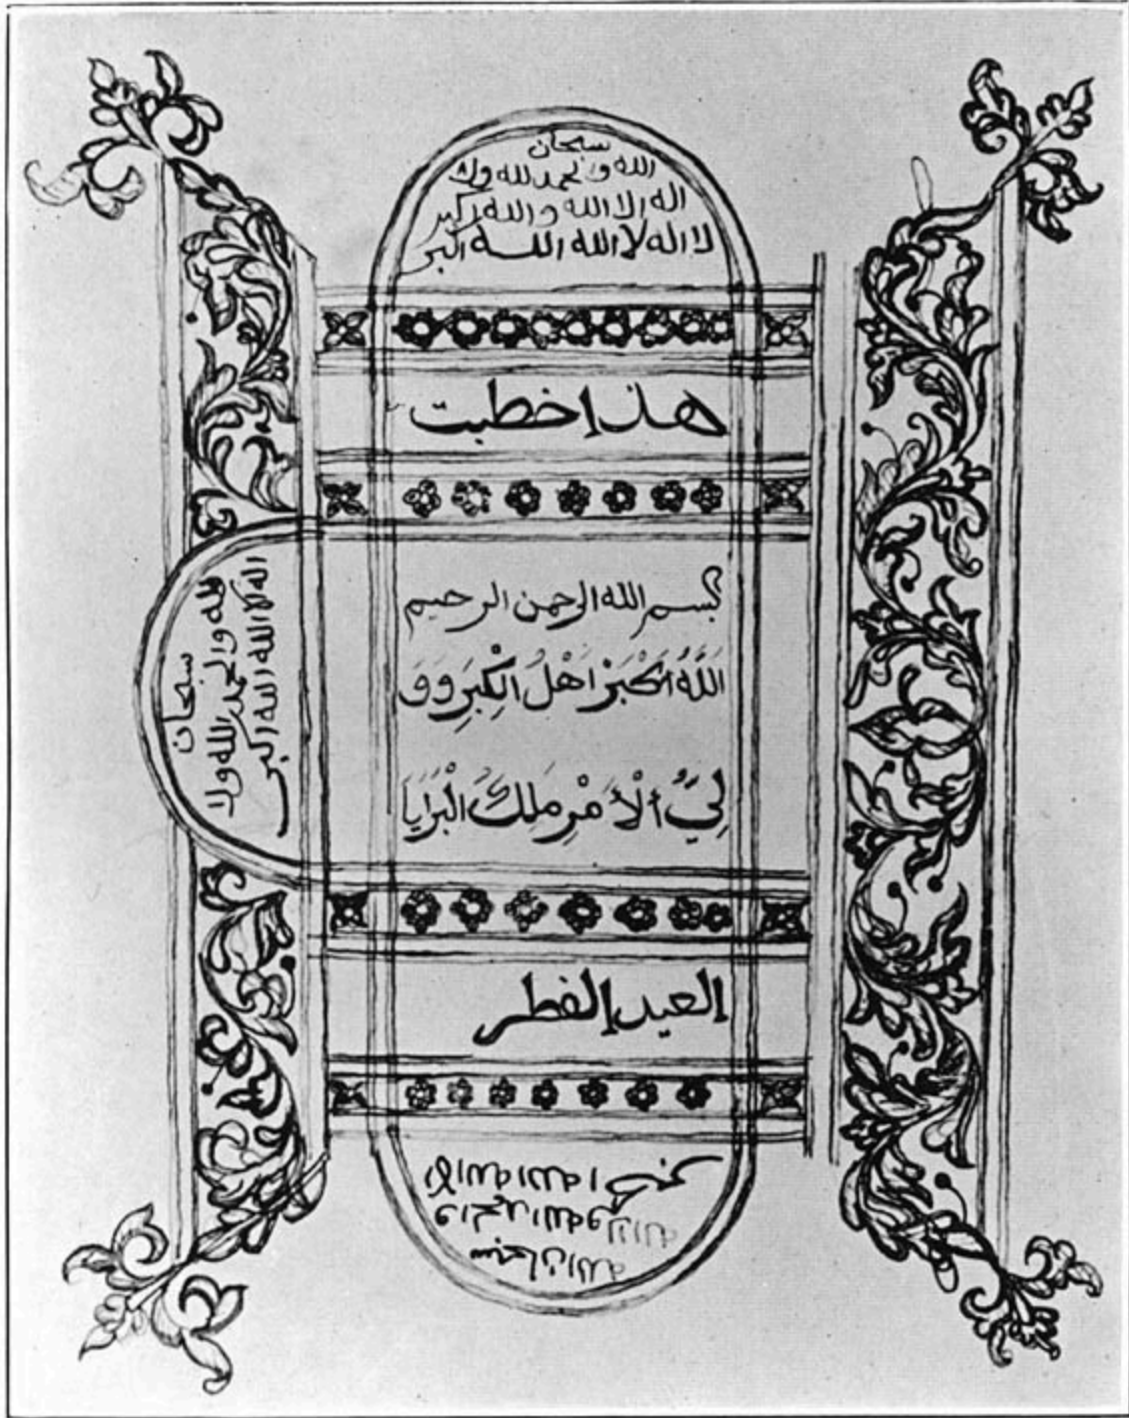 سبحان
الله والحمد لله ولا
اله الا الله والله اكبر
لا اله لا الله الله اكبر
هذا خطبت
بسم الله الرحمن الرحيم
اَللَّهُ اَكْبَرْ اَهْلُ الْكِبَرِ وَوَ
لِيُّ الْأَمْرِ مَلِكُ الْبَرَايَا
العيد الفطر
سبحان
الله والحمد لله ولا
اله الا الله الله اكبر